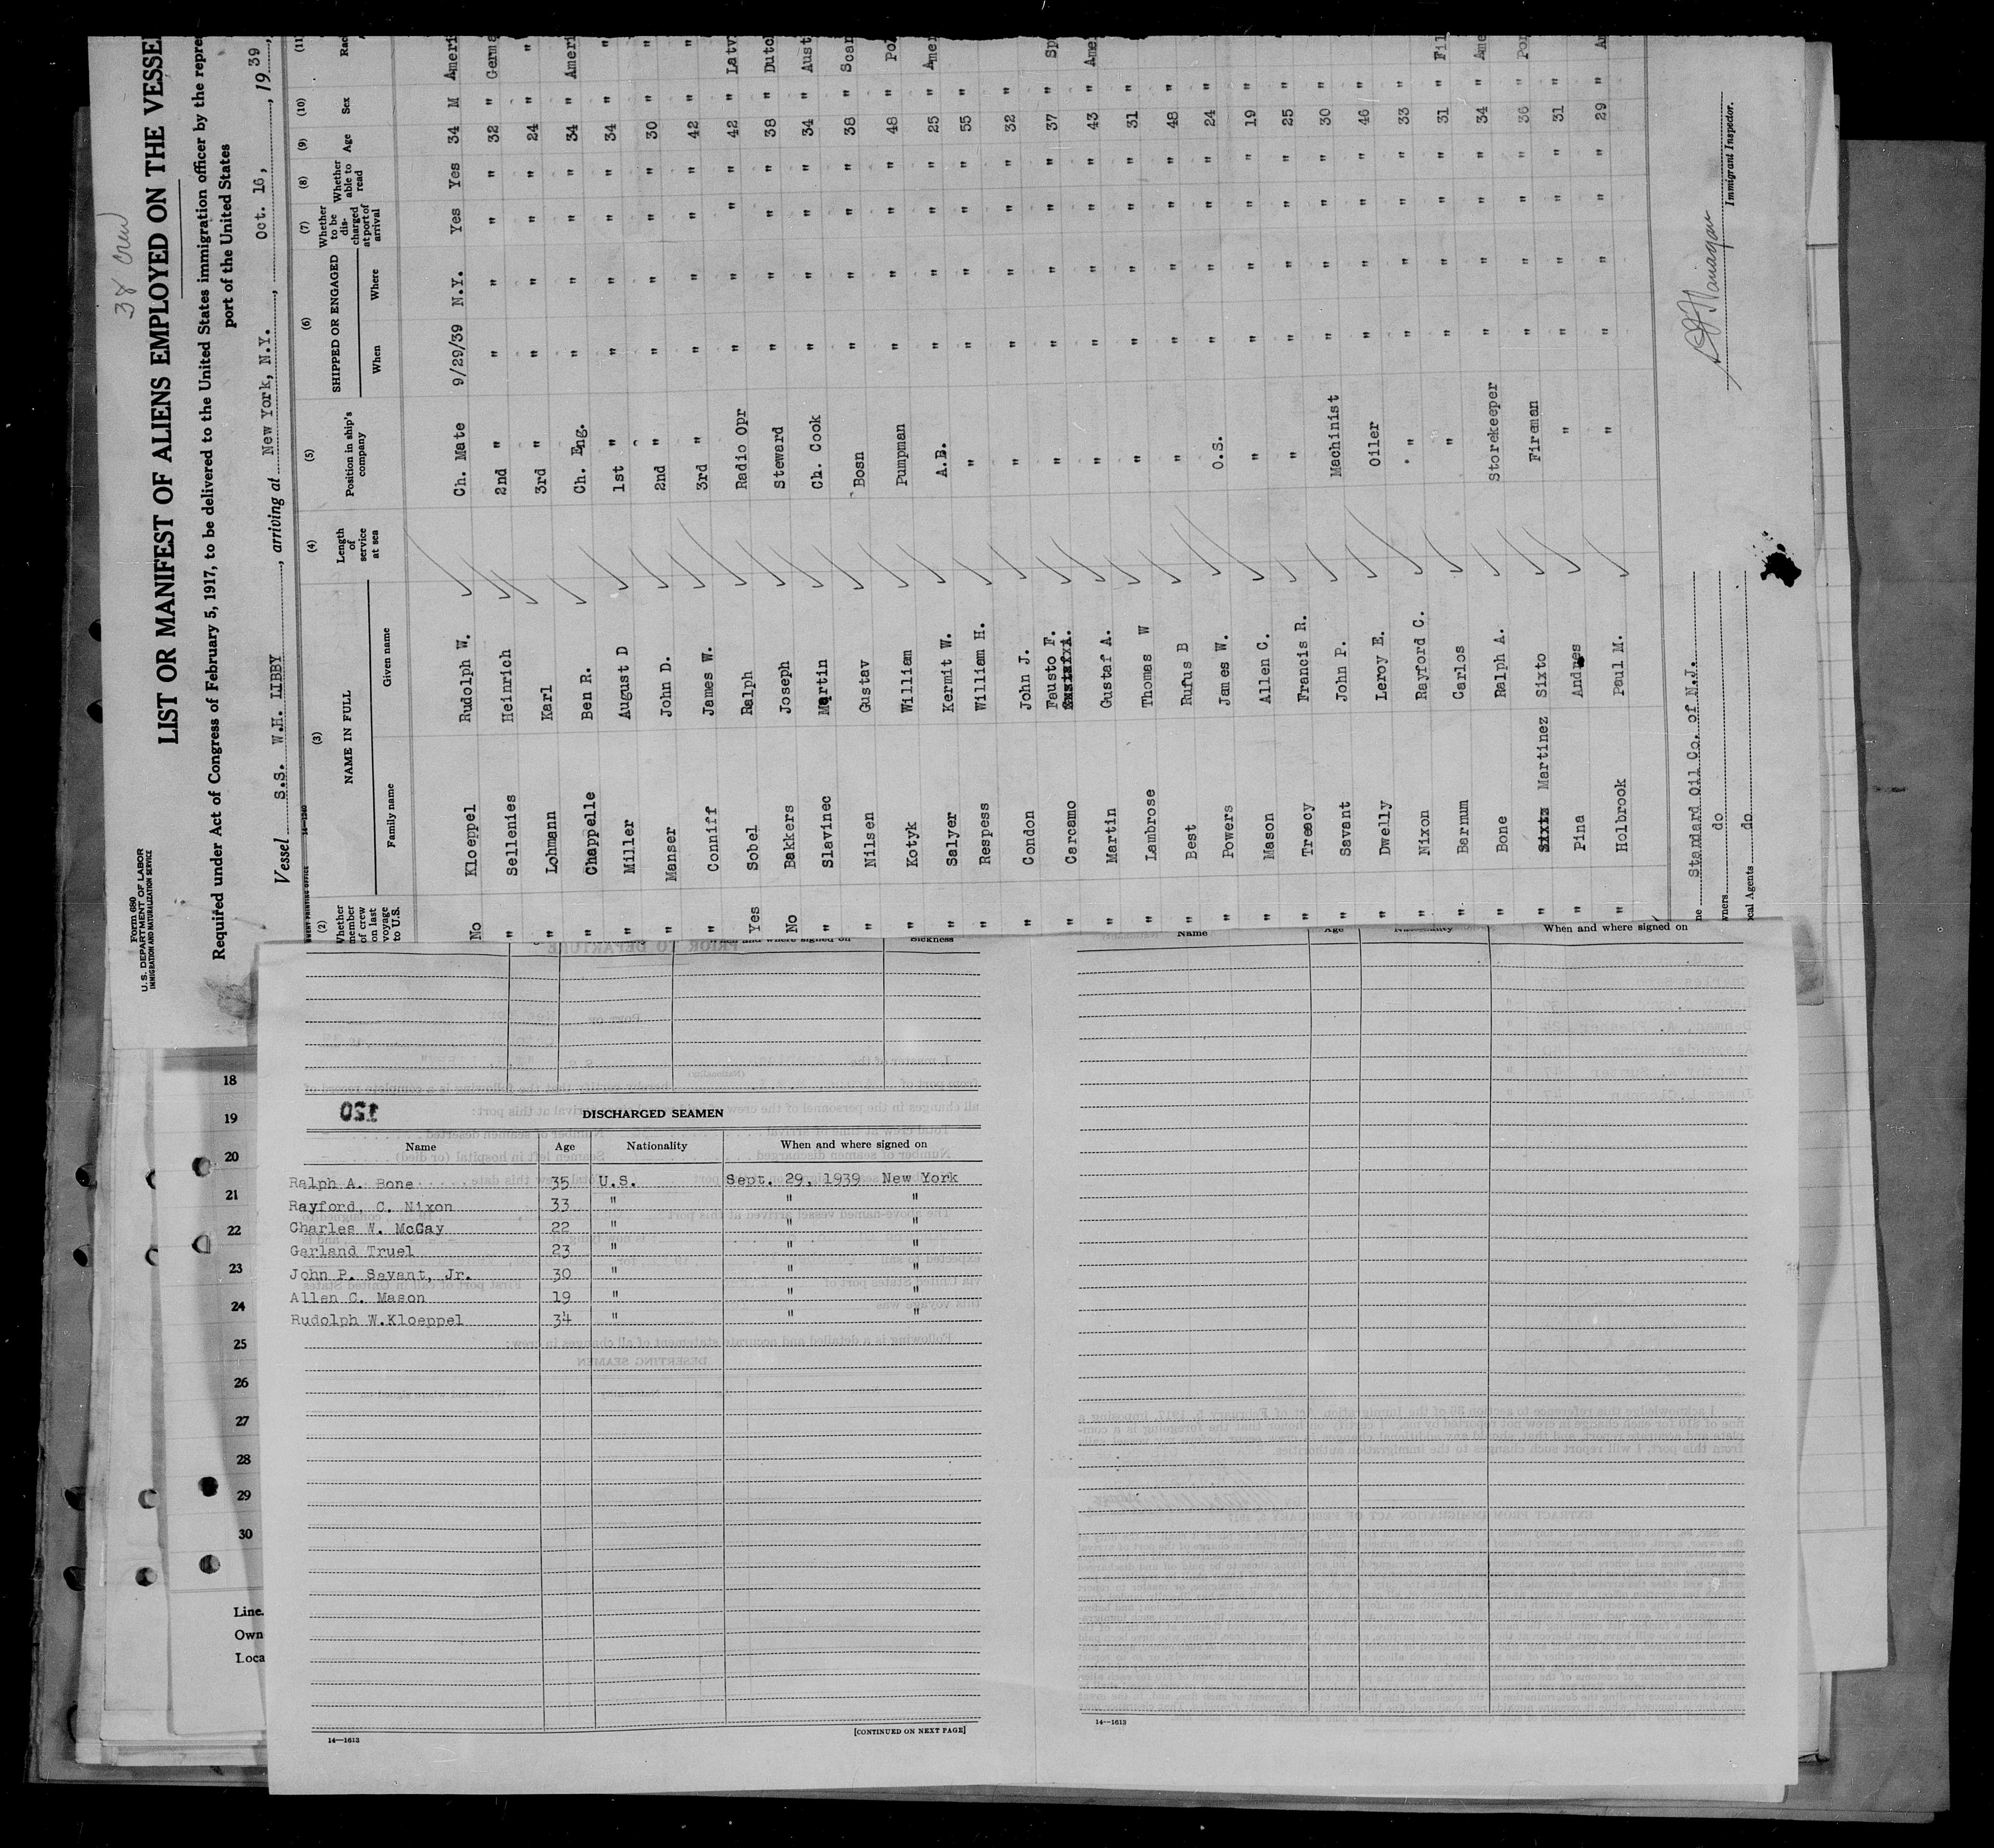 38 crew
Form 680
U. S. DEPARTMENT OF LABOR
IMMIGRATION AND NATURALIZATION SERVICE
LIST OR MANIFEST OF ALIENS EMPLOYED ON THE VESSEL
Required under Act of Congress of February 5, 1917, to be delivered to the United States immigration officer by the repre
port of the United States
Vessel S.S. W.H. LIBBY, arriving at New York, N.Y., Oct. 16, 1939,
(2) (3) (4) (5) (6) (7) (8) (9) (10) (11)
Whether member of crew on last voyage to U.S. NAME IN FULL Family name Given name Length of service at sea Position in ship's company SHIPPED OR ENGAGED When Where Whether to be discharged at port of arrival Whether able to read Age Sex Rac
No Kloeppel Rudolph W. Ch. Mate 9/29/39 N.Y. Yes Yes 34 M Ameri
" Sellenies Heinrich 2nd " " " " " 32 " Germa
" Lohmann Karl 3rd " " " " " 24 " "
" Chappelle Ben R. Ch. Eng. " " " " 34 " Ameri
" Miller August D 1st " " " " " 34 " "
" Manser John D. 2nd " " " " " 30 " "
" Conniff James W. 3rd " " " " " 42 " "
Yes Sobel Ralph Radio Opr " " " " 42 " Latv
No Bakkers Joseph Steward " " " " 38 " Dutc
" Slavinec Martin Ch. Cook " " " " 34 " Aust
" Nilsen Gustav Bosn " " " " 38 " Scan
" Kotyk William Pumpman " " " " 48 " Pol
" Salyer Kermit W. A.B. " " " " 25 " Amer
" Respess William H. " " " " " 55 "
" Condon John J. " " " " " 32 "
" Carcamo Fausto F. " " " " " 37 " Sp
" Martin Gustaf A. " " " " " 43 " Ame
" Lambrose Thomas W " " " " " 31 "
" Best Rufus B " " " " " 48 "
" Powers James W. O.S. " " " " 24 "
" Mason Allen C. " " " " " 19 "
" Treecy Francis R. " " " " " 25 "
" Savant John P. Machinist " " " " 30 "
" Dwelly Leroy E. Oiler " " " " 46 "
" Nixon Rayford C. " " " " " 33 "
" Barmum Carlos " " " " " 31 " Fil
" Bone Ralph A. Storekeeper " " " " 34 " Ame
" Sixtz Martinez Sixto Fireman " " " " 36 " Por
" Pina Andres " " " " " 31 "
" Holbrook Paul M. " " " " " 29 " Am
ne Standard Oil Co. of N.J.
wners do
cal Agents do
Immigrant Inspector.
When and where signed on Sickness
Name Age Nationality When and where signed on
18
19
20
21
22
23
24
25
26
27
28
29
30
Line
Own
Loca
120
DISCHARGED SEAMEN
Name Age Nationality When and where signed on
Ralph A. Bone 35 U.S. Sept. 29, 1939 New York
Rayford, C. Nixon 33 " " "
Charles W. McCay 22 " " "
Garland Truel 23 " " "
John P. Savant, Jr. 30 " " "
Allen C. Mason 19 " " "
Rudolph W.Kloeppel 34 " " "
14—1613
[CONTINUED ON NEXT PAGE]
14—1613